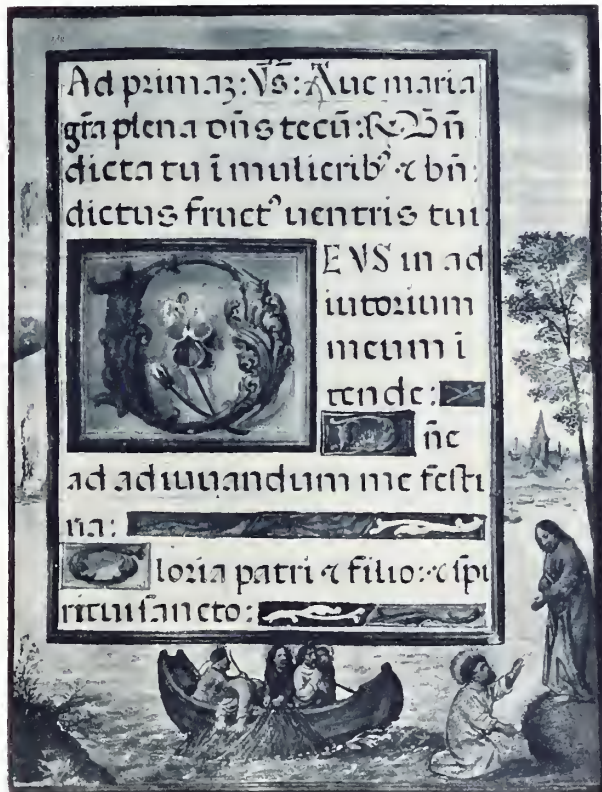 Ad primaꝫ: V̄s̄: Aue maria
gr̄a plena dn̄s tecū: R. Bn̄
dicta tu ī mulierib⁹ ⁊ bn̄:
dictus fruct⁹ uentris tui
DEVS in ad
iutorium
meum ī
tende:
Dn̄e
ad adiuuandum me festi
na:
Gloria patri ⁊ filio: ⁊ spi
ritui sancto: